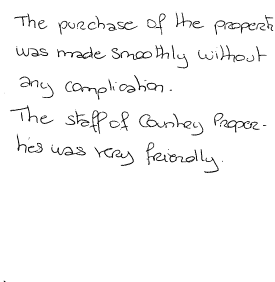 The purchase of the propert
was made smoothly without
any complication.
The staff of Country Proper-
ties was very friendly.